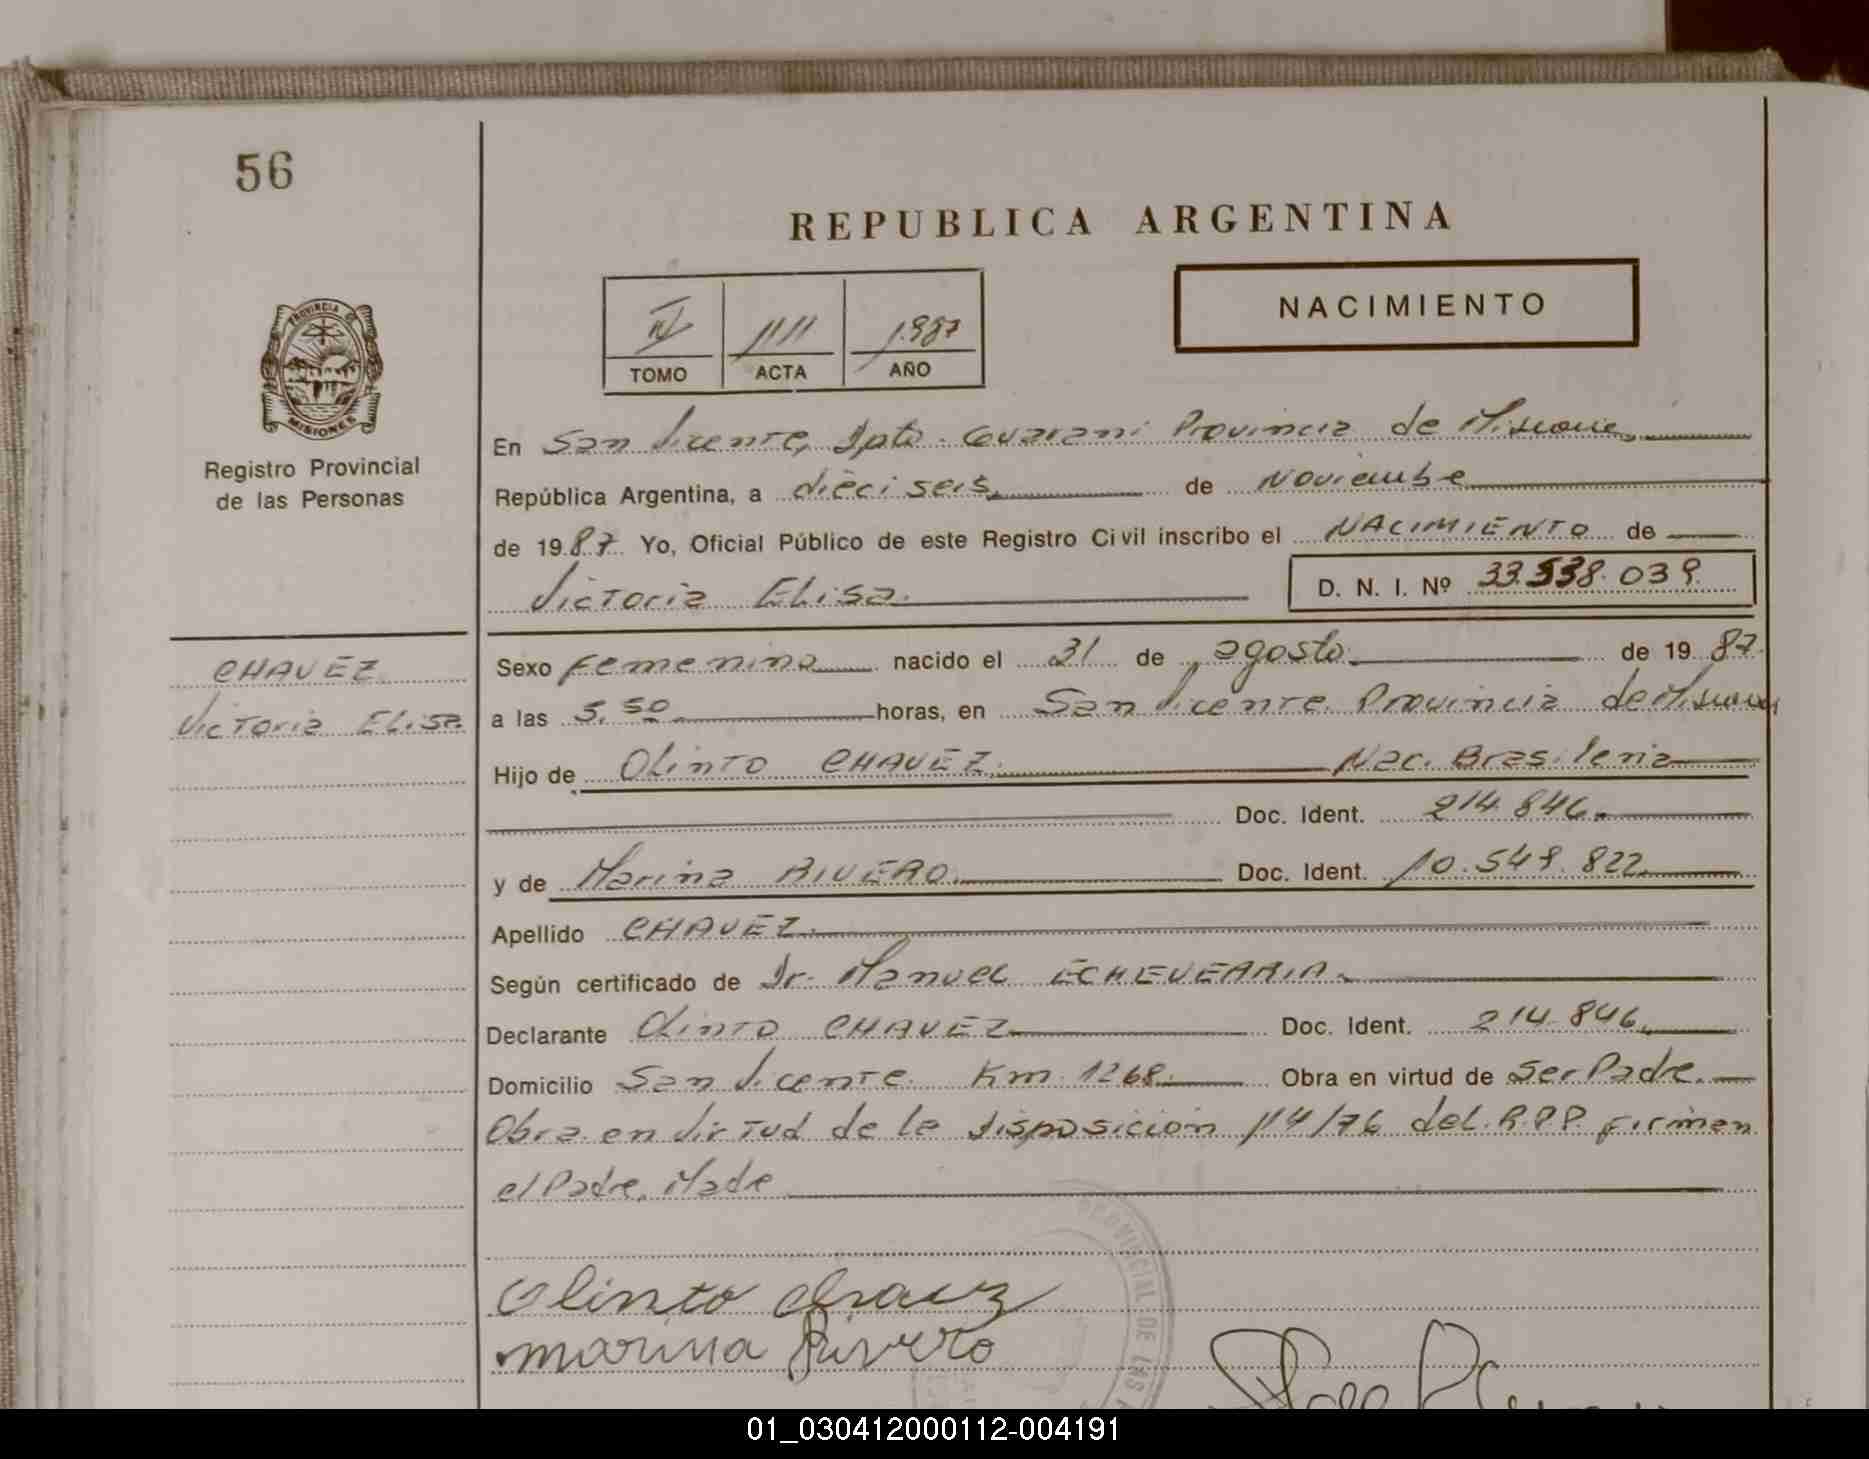 56
REPUBLICA ARGENTINA
NACIMIENTO
IV 1111 1.987
TOMO ACTA AÑO
PROVINCIA DE
MISIONES
Registro Provincial
de las Personas
En San Vicente, Dpto. Guarani Provincia de Misiones
República Argentina, a dieciseis de Noviembre
de 1987 Yo, Oficial Público de este Registro Civil inscribo el NACIMIENTO de
Victoria Elisa. D. N. I. Nº 33.538.039.
CHAVEZ
Victoria Elisa
Sexo femenino nacido el 31 de agosto de 1987.
a las 5.50 horas, en San Vicente Provincia de Misiones
Hijo de Olinto CHAVEZ. Nac. Brasileria
Doc. Ident. 214.846.
y de Marina RIVERO. Doc. Ident. 10.549.822
Apellido CHAVEZ.
Según certificado de Dr. Manuel ECHEVERRIA.
Declarante Olinto CHAVEZ Doc. Ident. 214.846.
Domicilio San Vicente Km 1268. Obra en virtud de Ser Padre.
Obra en Virtud de la Disposicion 114/76 del R.P.P. firman
el Padre, Made
Olinto Chavez
Marina Rivero
PROVINCIAL DE LAS
01_030412000112-004191